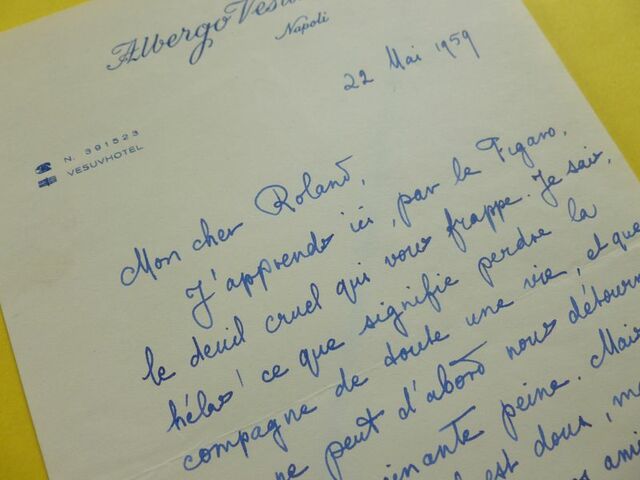 Albergo Vesu
Napoli
22 Mai 1959
N. 391523
VESUVHOTEL
Mon cher Roland,
J'apprends ici, par le Figaro,
le deuil cruel qui vous frappe. Je sais,
hélas! ce que signifie perdre la
compagne de toute une vie, et que
ne peut d'abord nous détourn
peine. Mais
est doux, m
ami